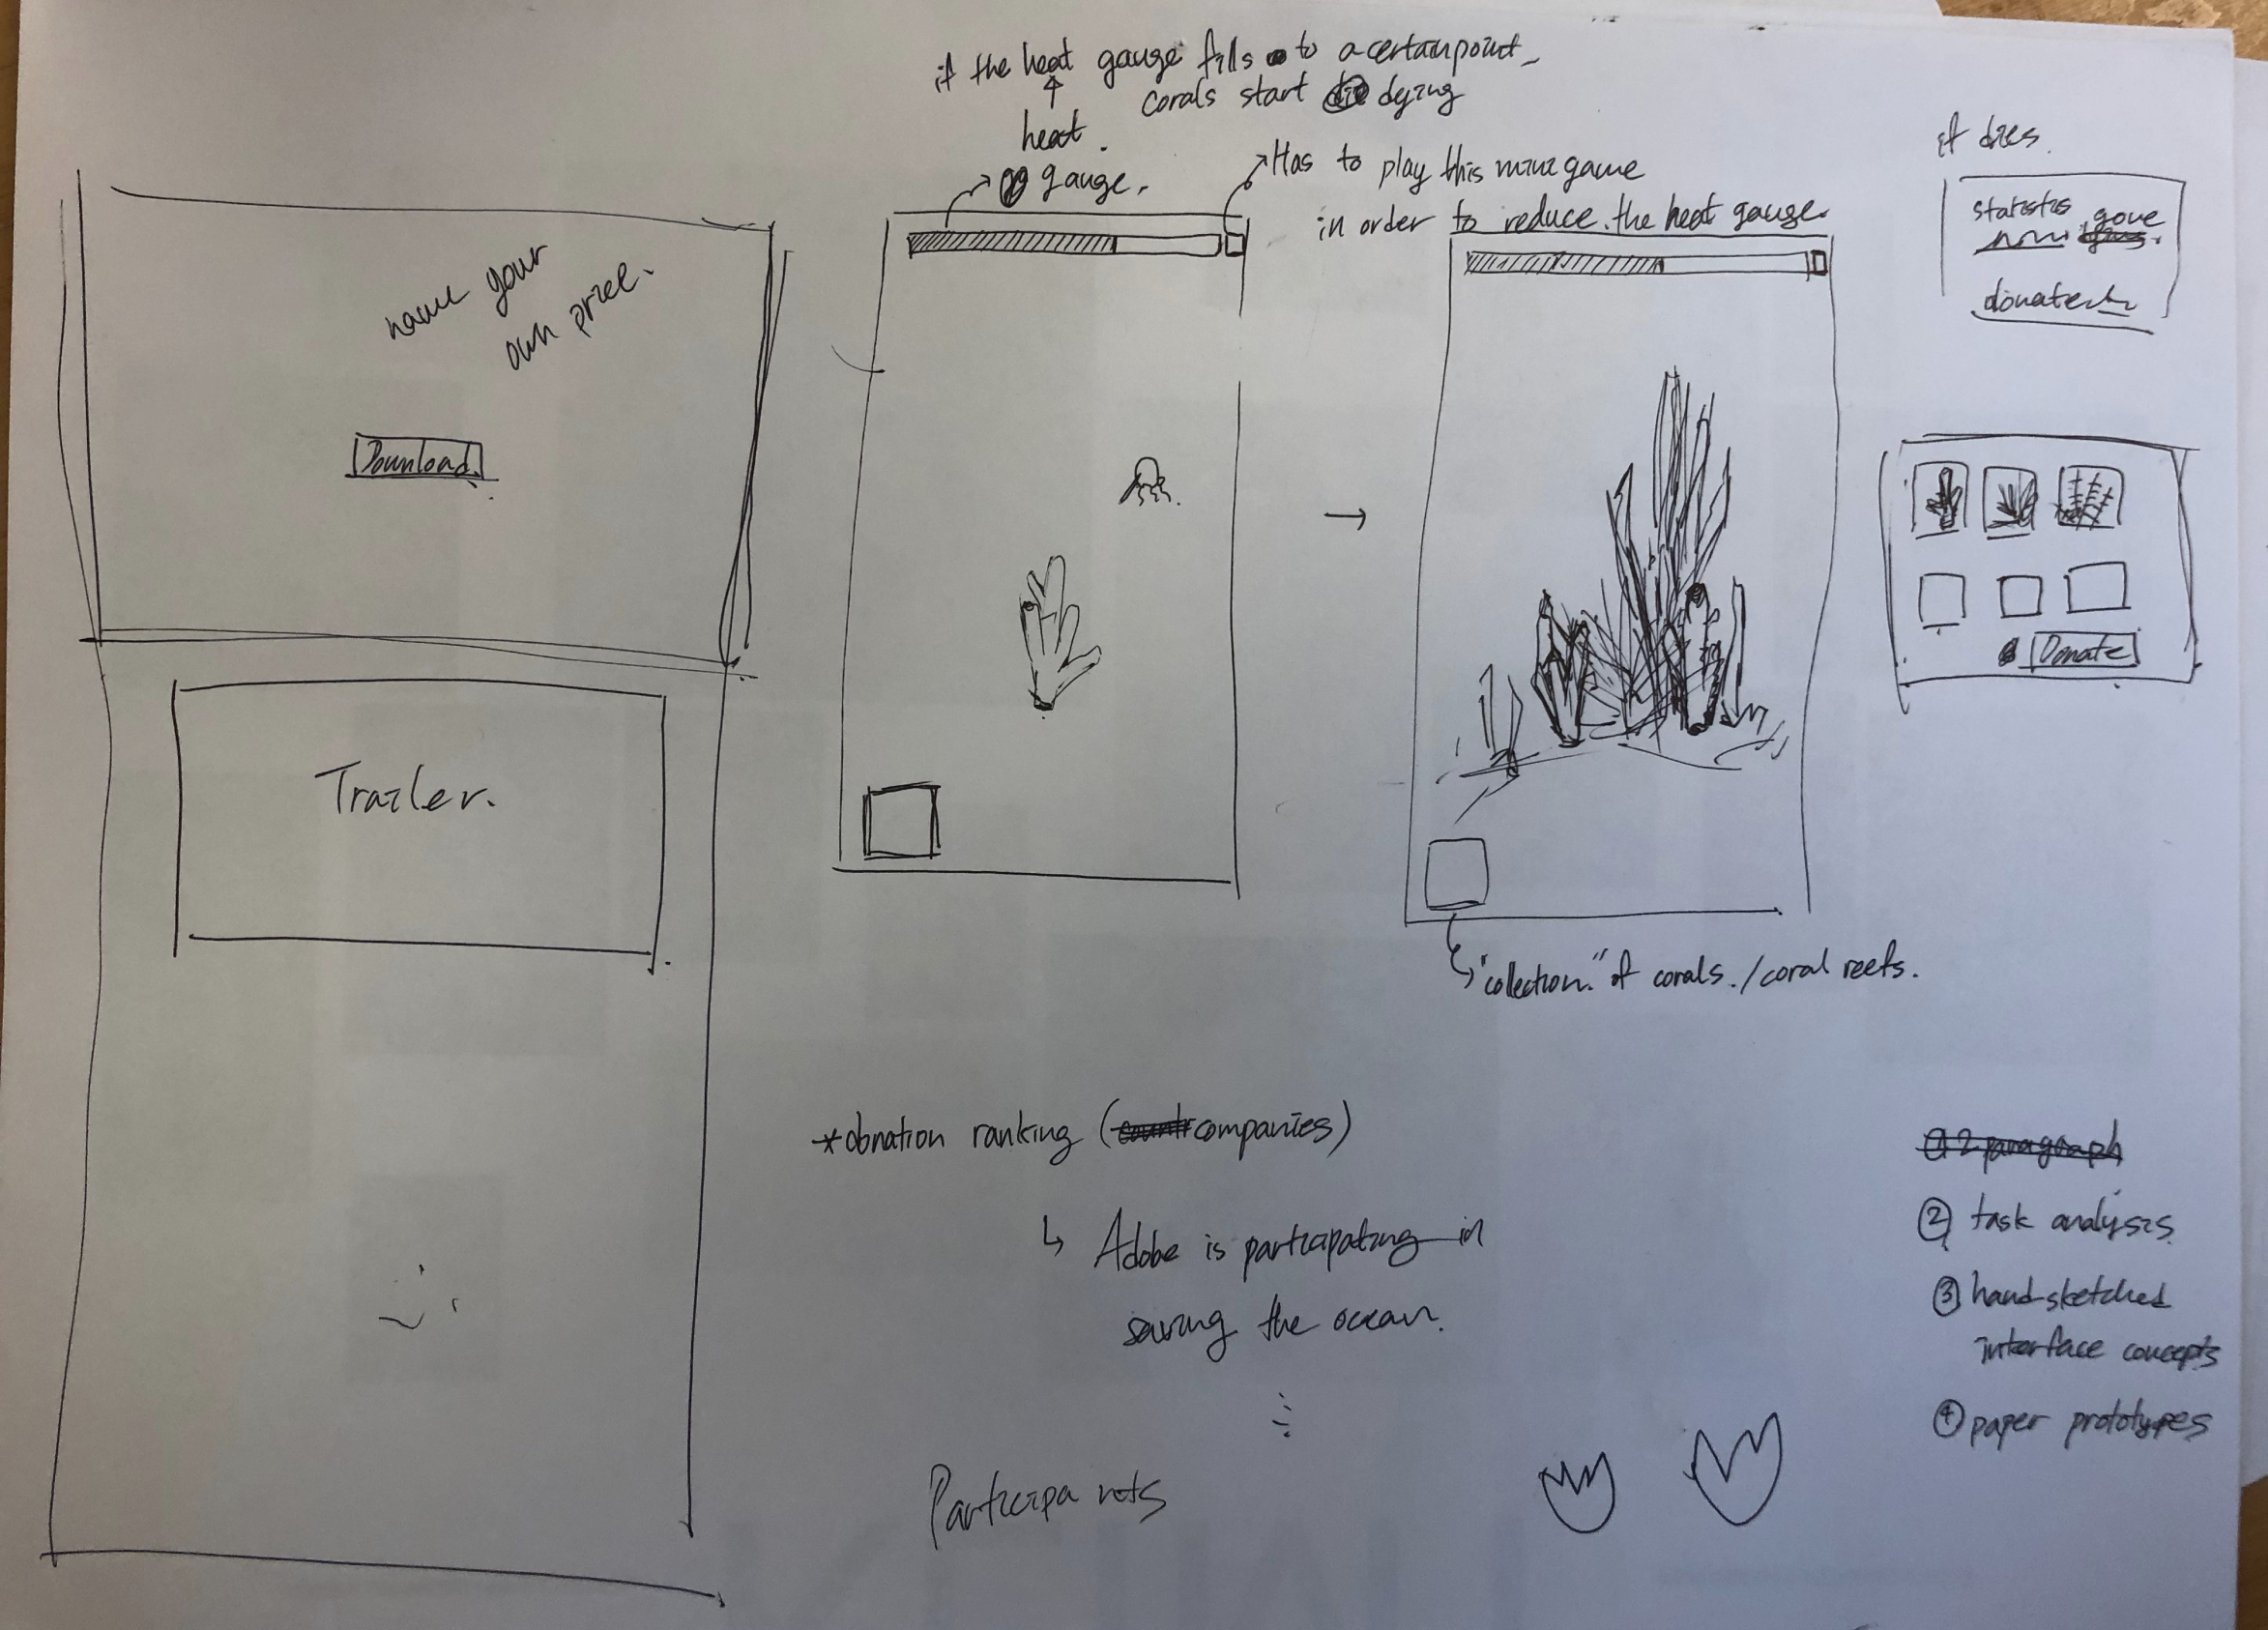 if the heat gauge fills to a certain point
corals start dying
heat.
gauge.
Has to play this mini game
in order to reduce the heat gauge.
if dies.
statistics
gone
donate
name your
own price.
Download
Trailer.
Donate
"collection." of corals. / coral reefs.
*donation ranking (companies)
↳ Adobe is participating in
saving the ocean.
Participants
2 paragraph
② task analysis
③ hand-sketched
interface concepts
④ paper prototypes